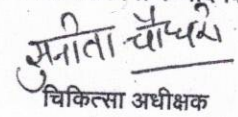 सुनीता चौधरी
चिकित्सा अधीक्षक